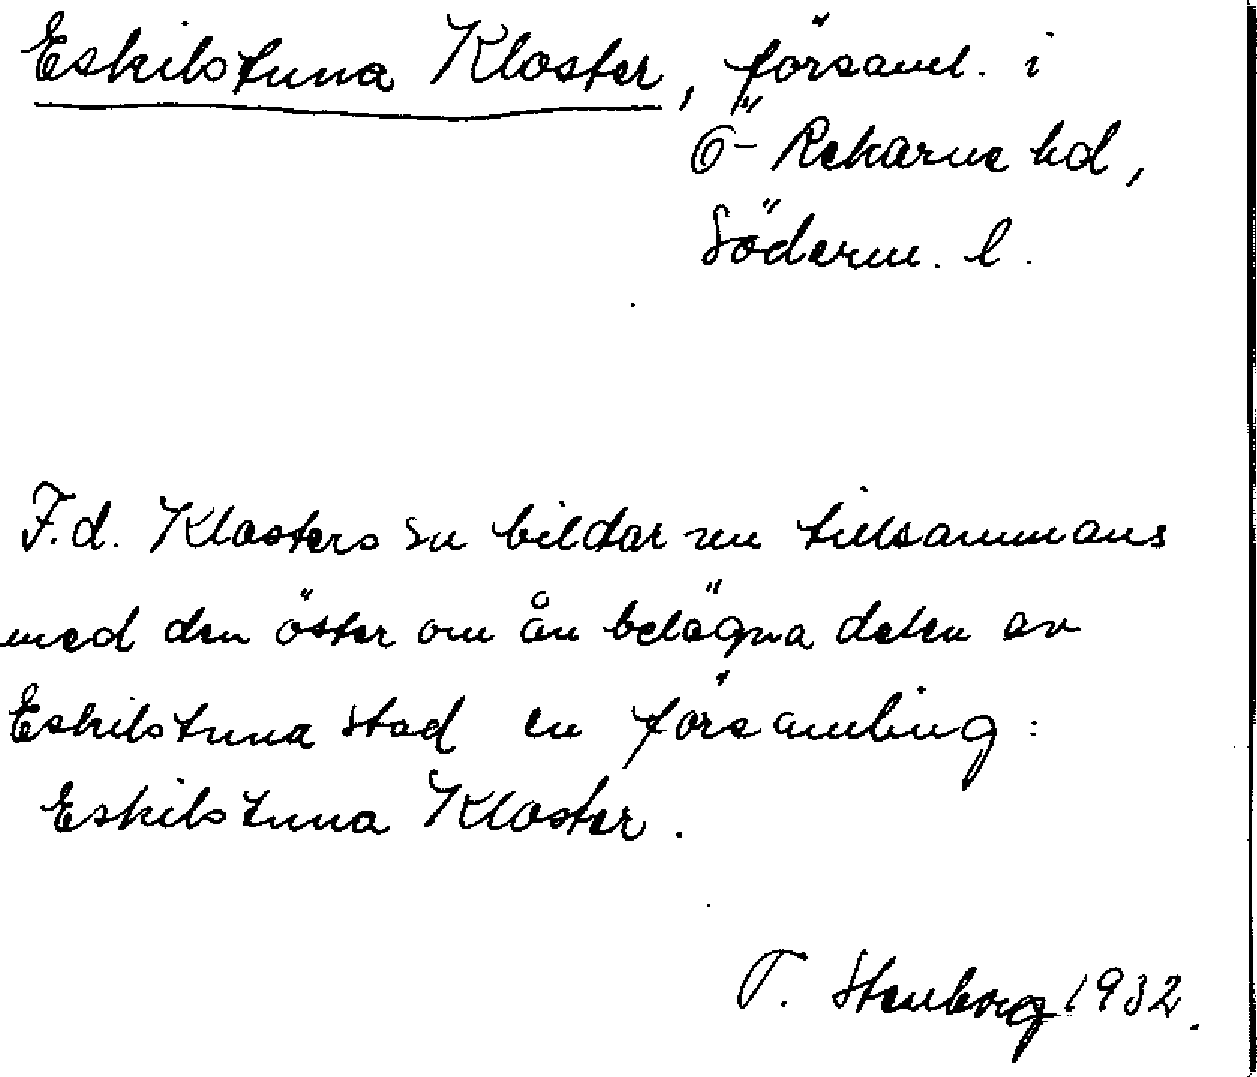 Eskilstuna Kloster, församl. i
Ö- Rekarne hd,
Söderm. l.
F.d. Klosters sn bildar nu tillsammans
med den öster om ån belägna delen av
Eskilstuna stad en församling:
Eskilstuna Kloster.
T. Stenborg 1932.